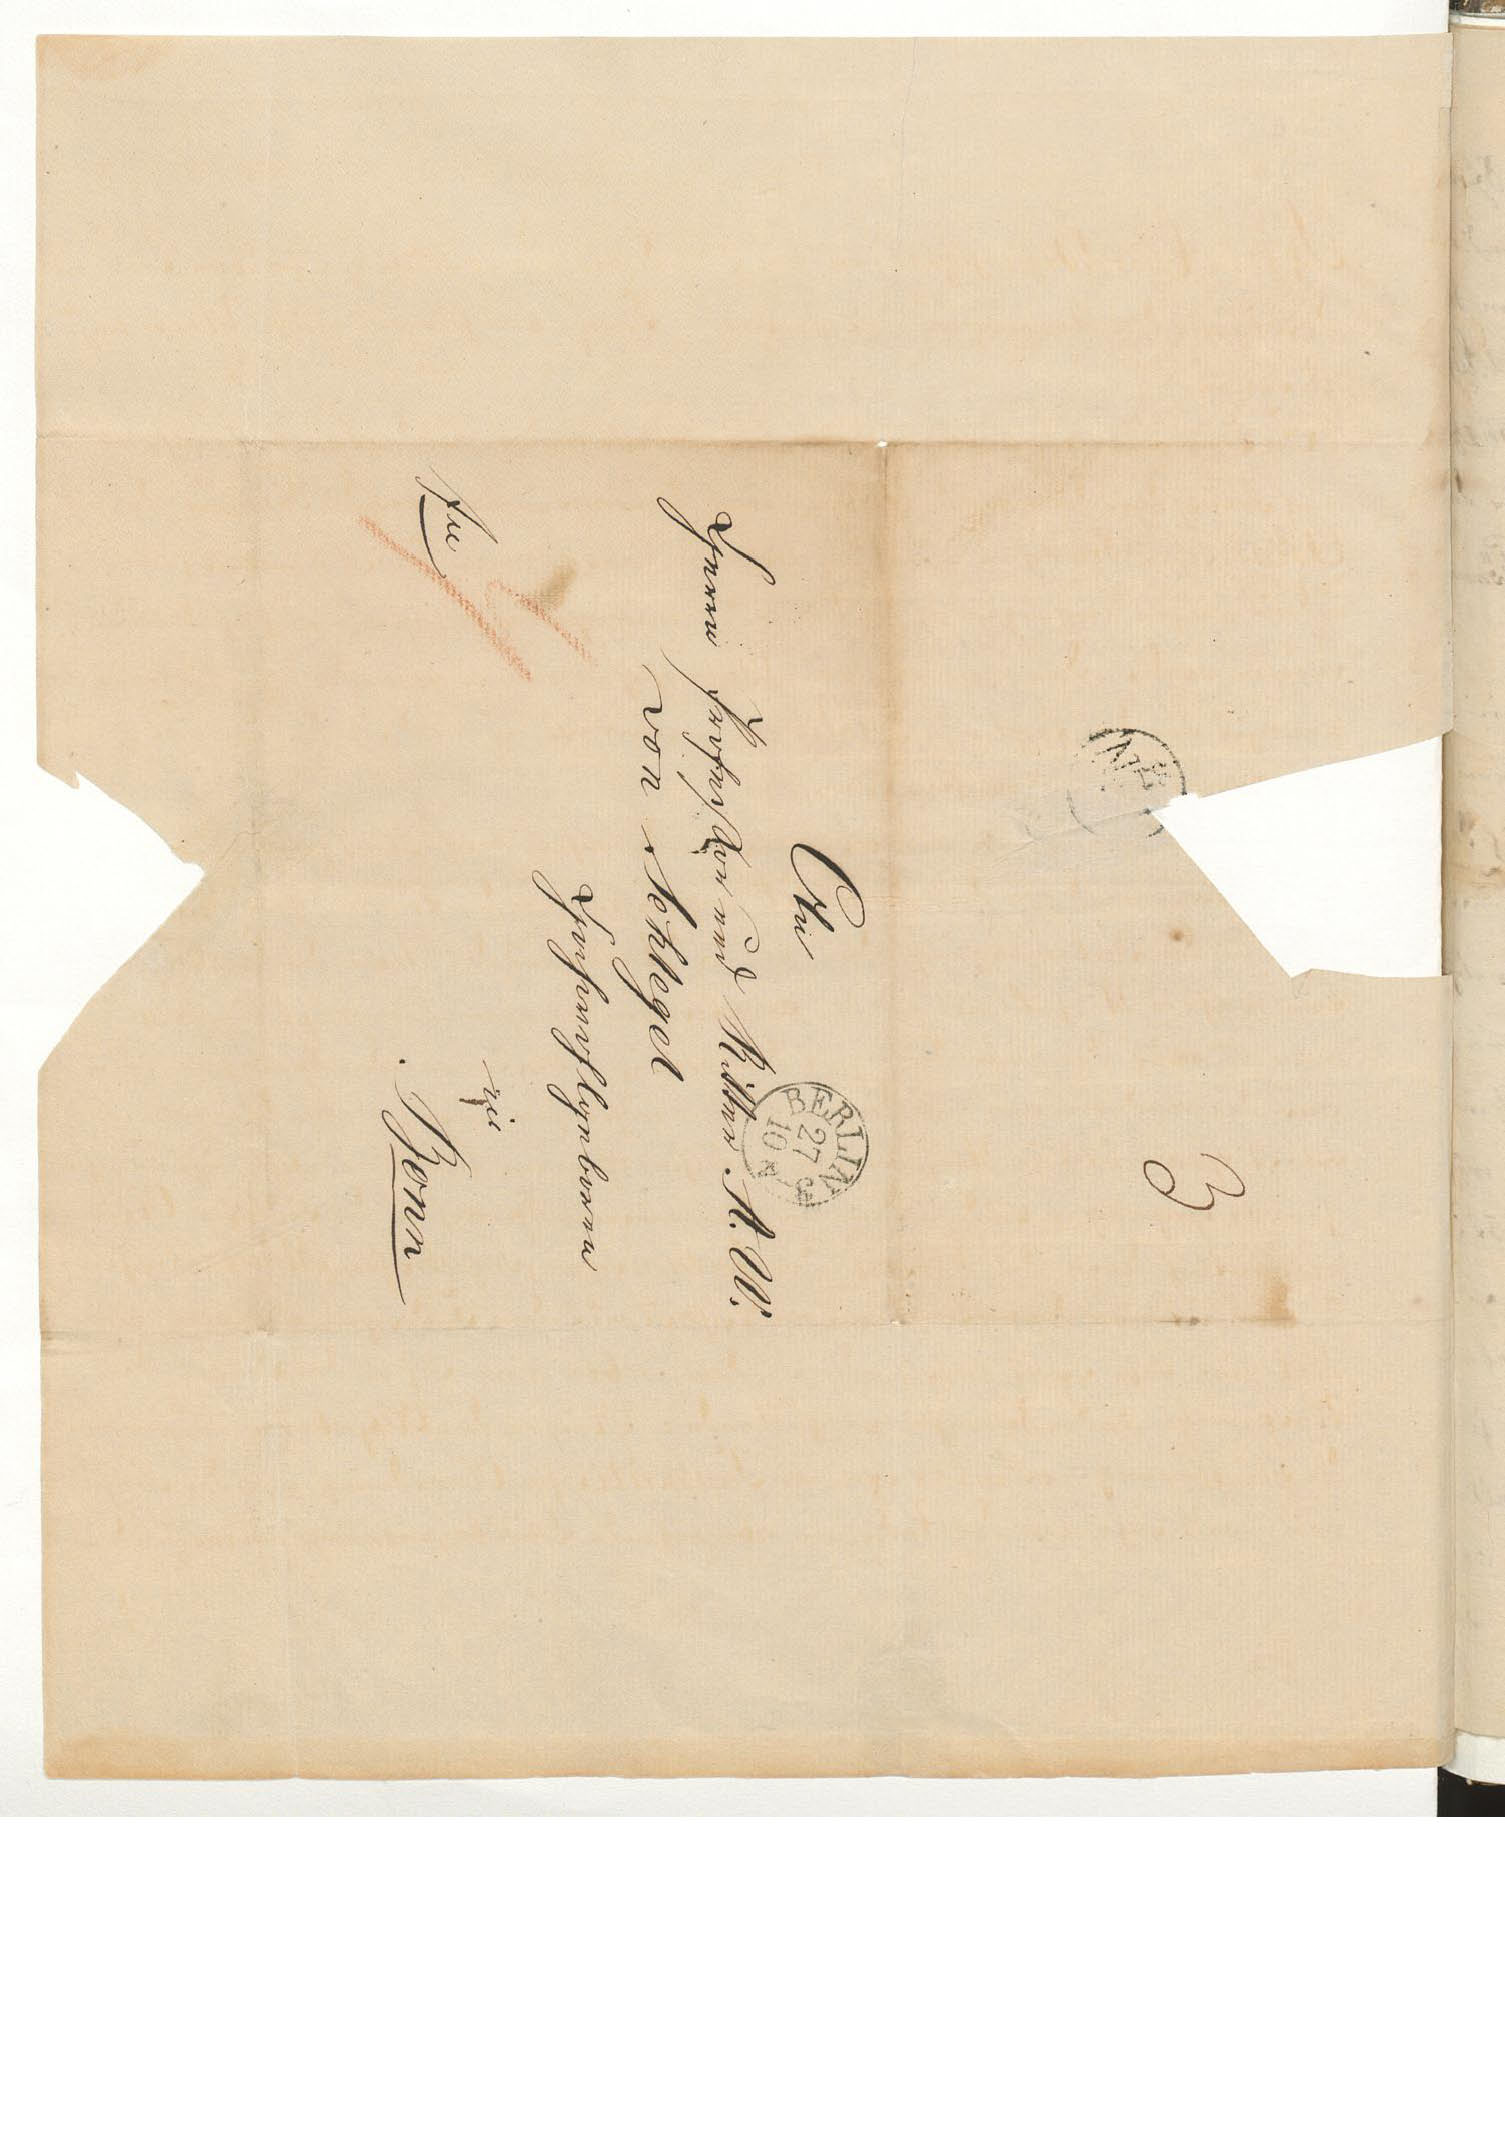 An
Herrn Professor und Ritter A. W.
von Schlegel
Hochwohlgeboren
in
Bonn
frei
BERLIN
27 3
10
3